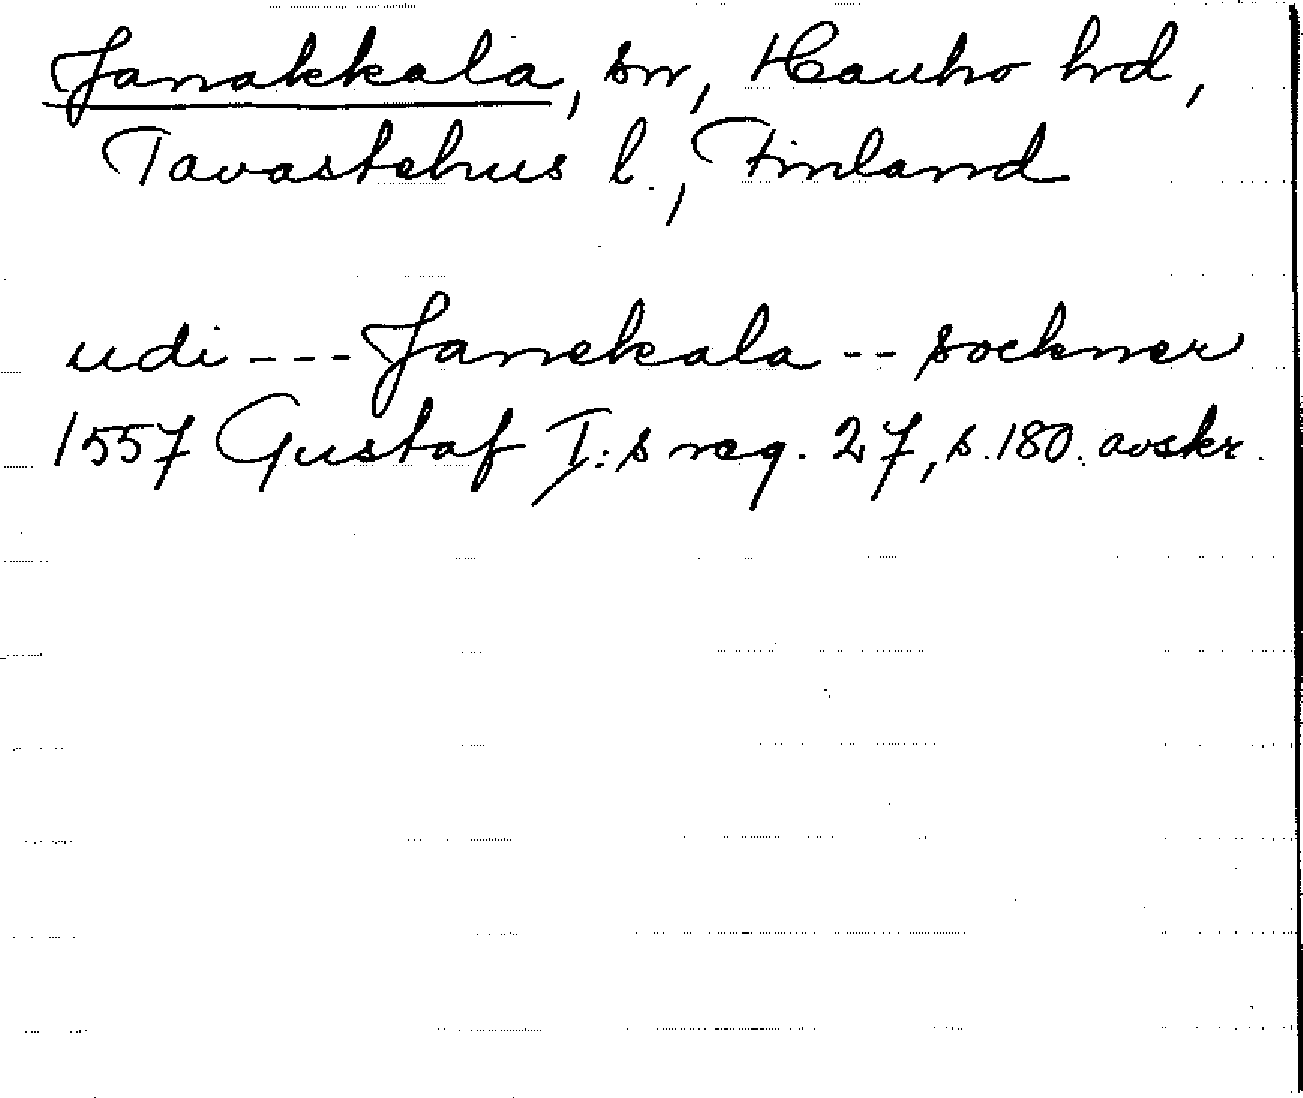 Janakkala, sn, Hauho hd,
Tavastehus l., Finland
udi --- Janekala -- sockner
1557 Gustaf I:s reg. 27, s. 180. avskr.